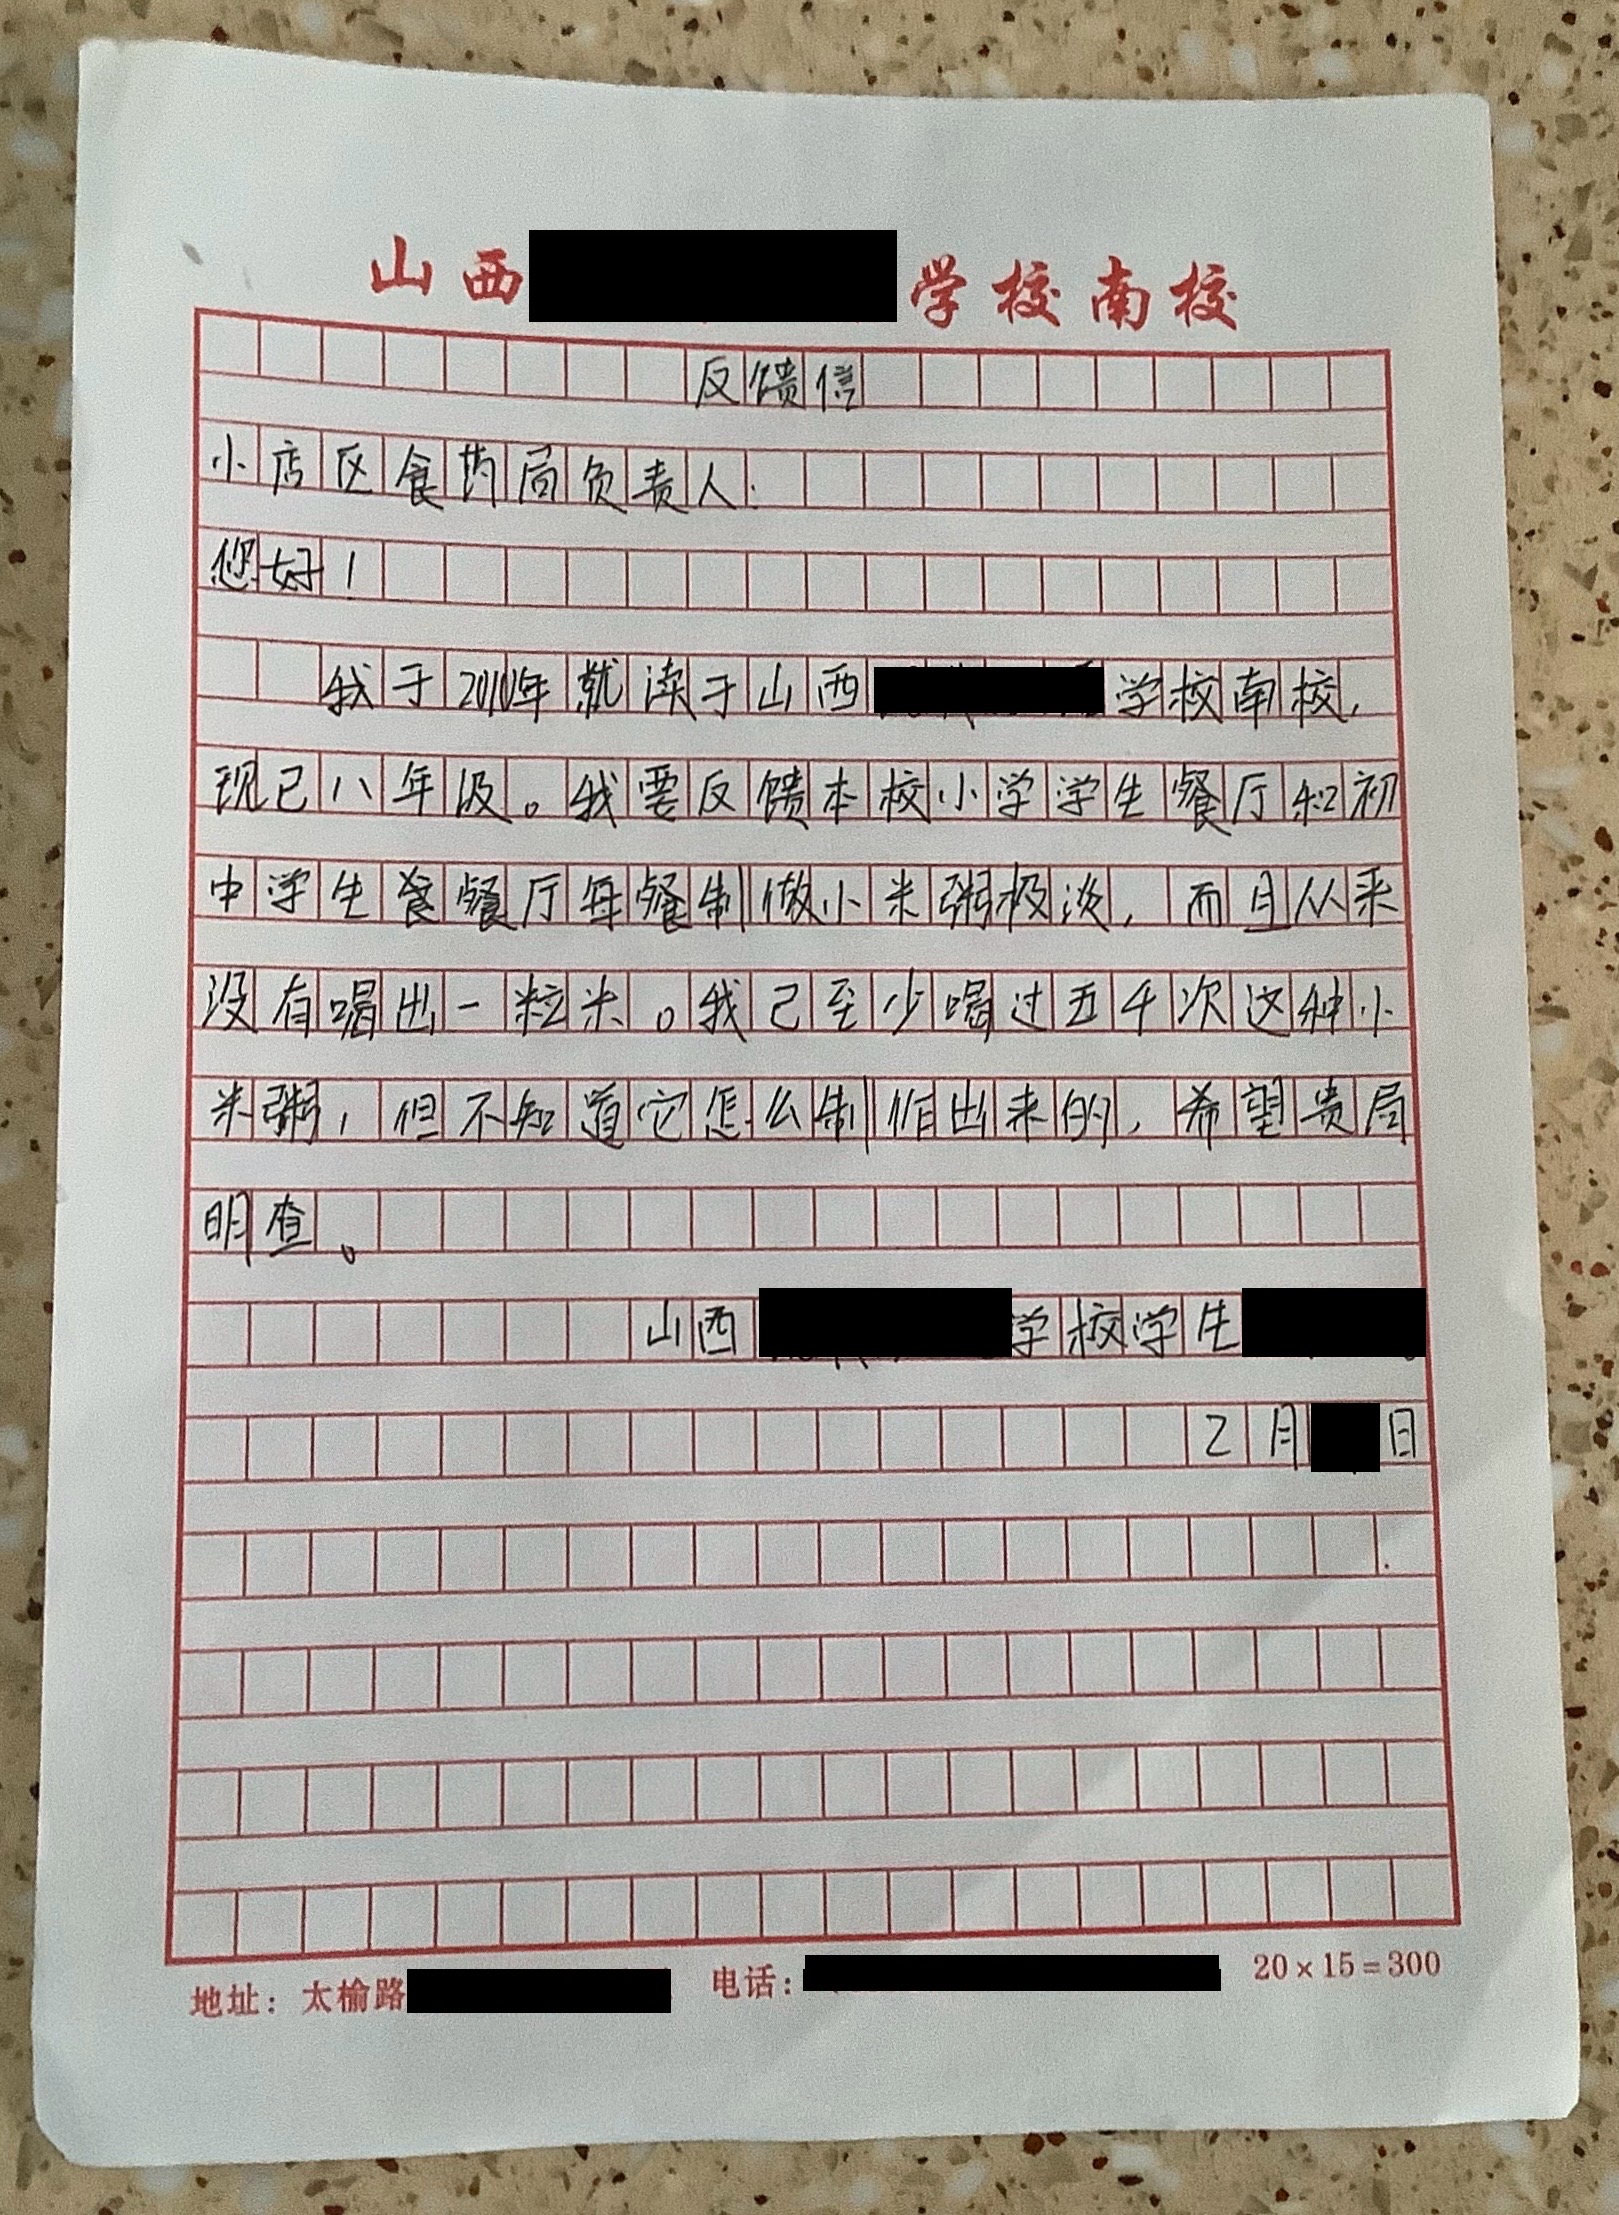 山西 学校南校
反馈信
小店区食药局负责人:
您好!
我于2010年就读于山西 学校南校,
现已八年级。我要反馈本校小学学生餐厅和初
中学生餐餐厅每餐制做小米粥极淡,而且从来
没有喝出一粒米。我已至少喝过五千次这种小
米粥,但不知道它怎么制作出来的,希望贵局
明查。
山西 学校学生
2月 日
地址:太榆路 电话: 20×15=300